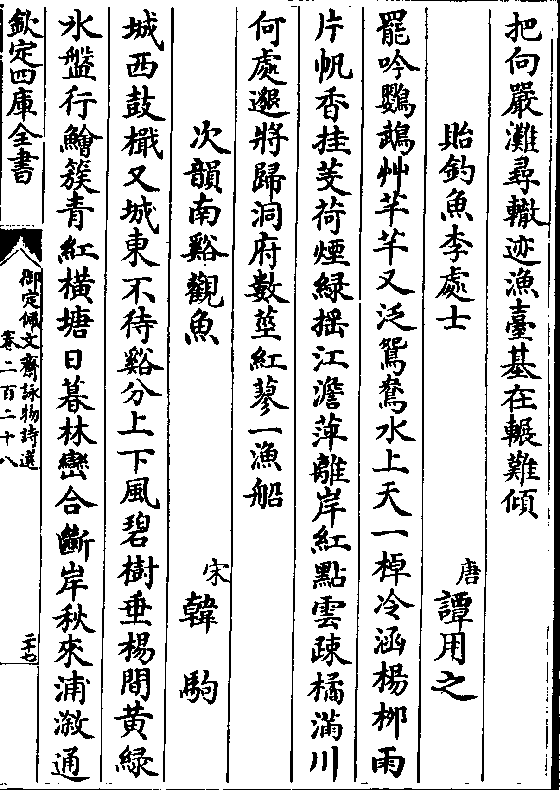 把向嚴灘尋轍迹漁臺基在輾難傾
貽釣魚李處士 唐 譚用之
罷吟鸚鵡艸芊芊又泛鴛鴦水上天一棹冷涵楊栁雨
片帆香挂芰荷煙綠摇江澹萍離岸紅點雲疎橘滿川
何處邀將歸洞府數莖紅蓼一漁船
次韻南谿觀魚 宋 韓駒
城西鼓檝又城東不待谿分上下風碧樹垂楊間黄綠
氷盤行鱠簇青紅橫塘日暮林巒合斷岸秋來浦溆通
欽定四庫全書 御定佩文齋詠物詩選 卷二百二十八 二十七